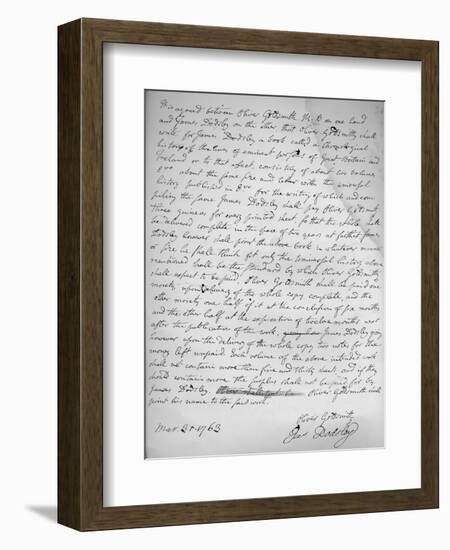 It is agreed between Oliver Goldsmith M:B on one hand
and James Dodsley on the other that Oliver Goldsmith shall
write for James Dodsley a book called a Chronological
history of the lives of eminent persons of Great Britain and
Ireland or to that effect, consisting of about two volumes
8vo about the same size and letter with the universal
history published in 8vo for the writing of which and com-
piling the same James Dodsley shall pay Oliver Goldsmith
three guineas for every printed sheet, so that the whole shall
be delivered complete in the space of two years at farthest James
Dodsley however shall print the above book in whatever manner
or size he shall think fit only the universal history above
mentioned shall be the standard by which Oliver Goldsmith
shall expect to be paid. Oliver Goldsmith shall be paid one
moiety upon delivery of the whole copy complete, and the
other moiety one half of it at the conclusion of six months
and the other half at the expiration of twelve months next
after the publication of the work. James Dodsley giving
however upon the delivery of the whole copy two notes for the
money left unpaid. Each volume of the above intended work
shall not contain more than five and thirty sheets and if they
should contain more the surplus shall not be paid for by
James Dodsley. Oliver Goldsmith shall
print his name to the said work.
Oliver Goldsmith
Jas Dodsley
Mar. 31. 1763